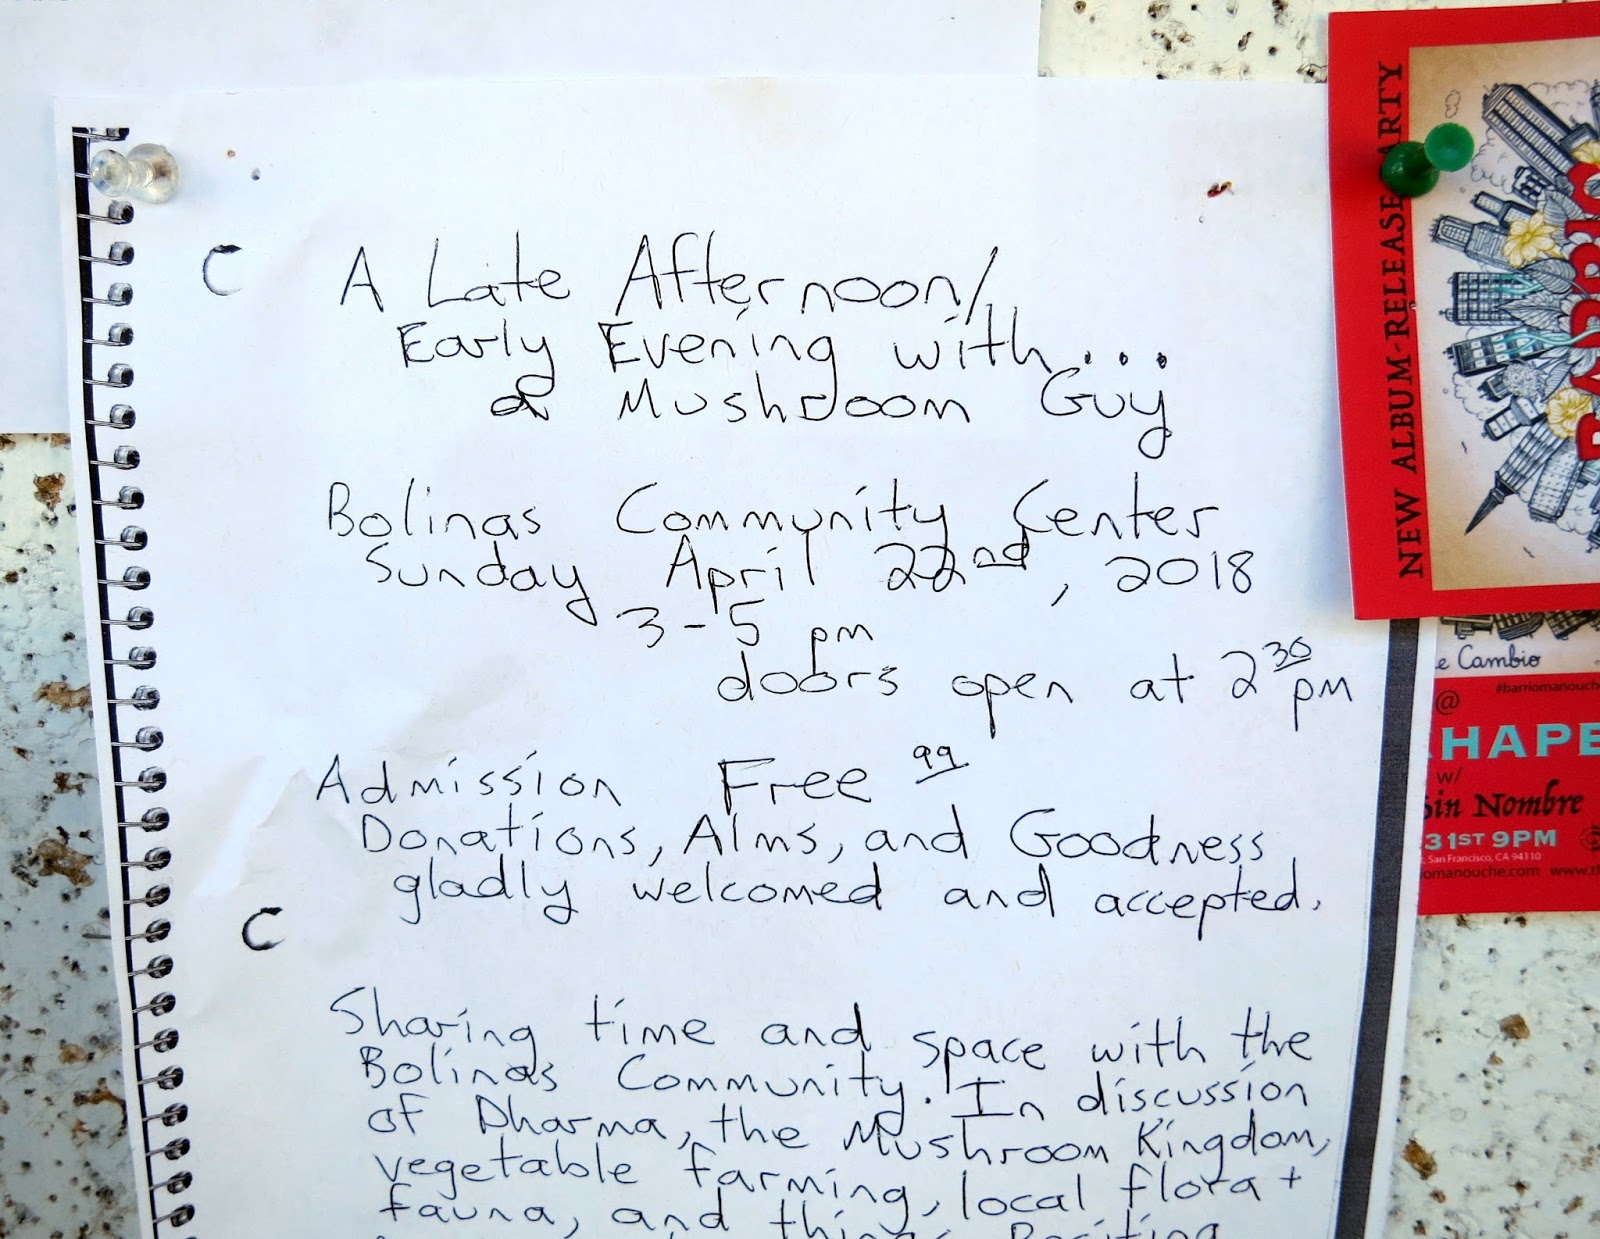 A Late Afternoon/
Early Evening with...
a Mushroom Guy
Bolinas Community Center
Sunday April 22nd, 2018
3-5 pm
doors open at 2 30 pm
Admission Free 99
Donations, Alms, and Goodness
gladly welcomed and accepted.
Sharing time and space with the
Bolinas Community. In discussion
of Dharma, the Mushroom Kingdom,
vegetable farming, local flora +
fauna, and
NEW ALBUM-RELEASE ARTY
e Cambio
#barriomanouche
@
HAPE
w/
Sin Nombre
31ST 9PM
San Francisco, CA 94110
iomanouche.com www.